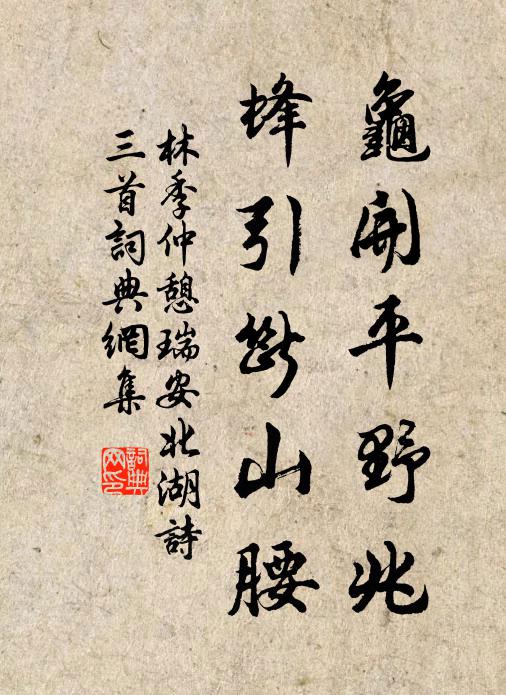 龜開平野兆
蜂引斷山腰
林季仲憩瑞安北湖詩
三首詞典網集
詞典網印